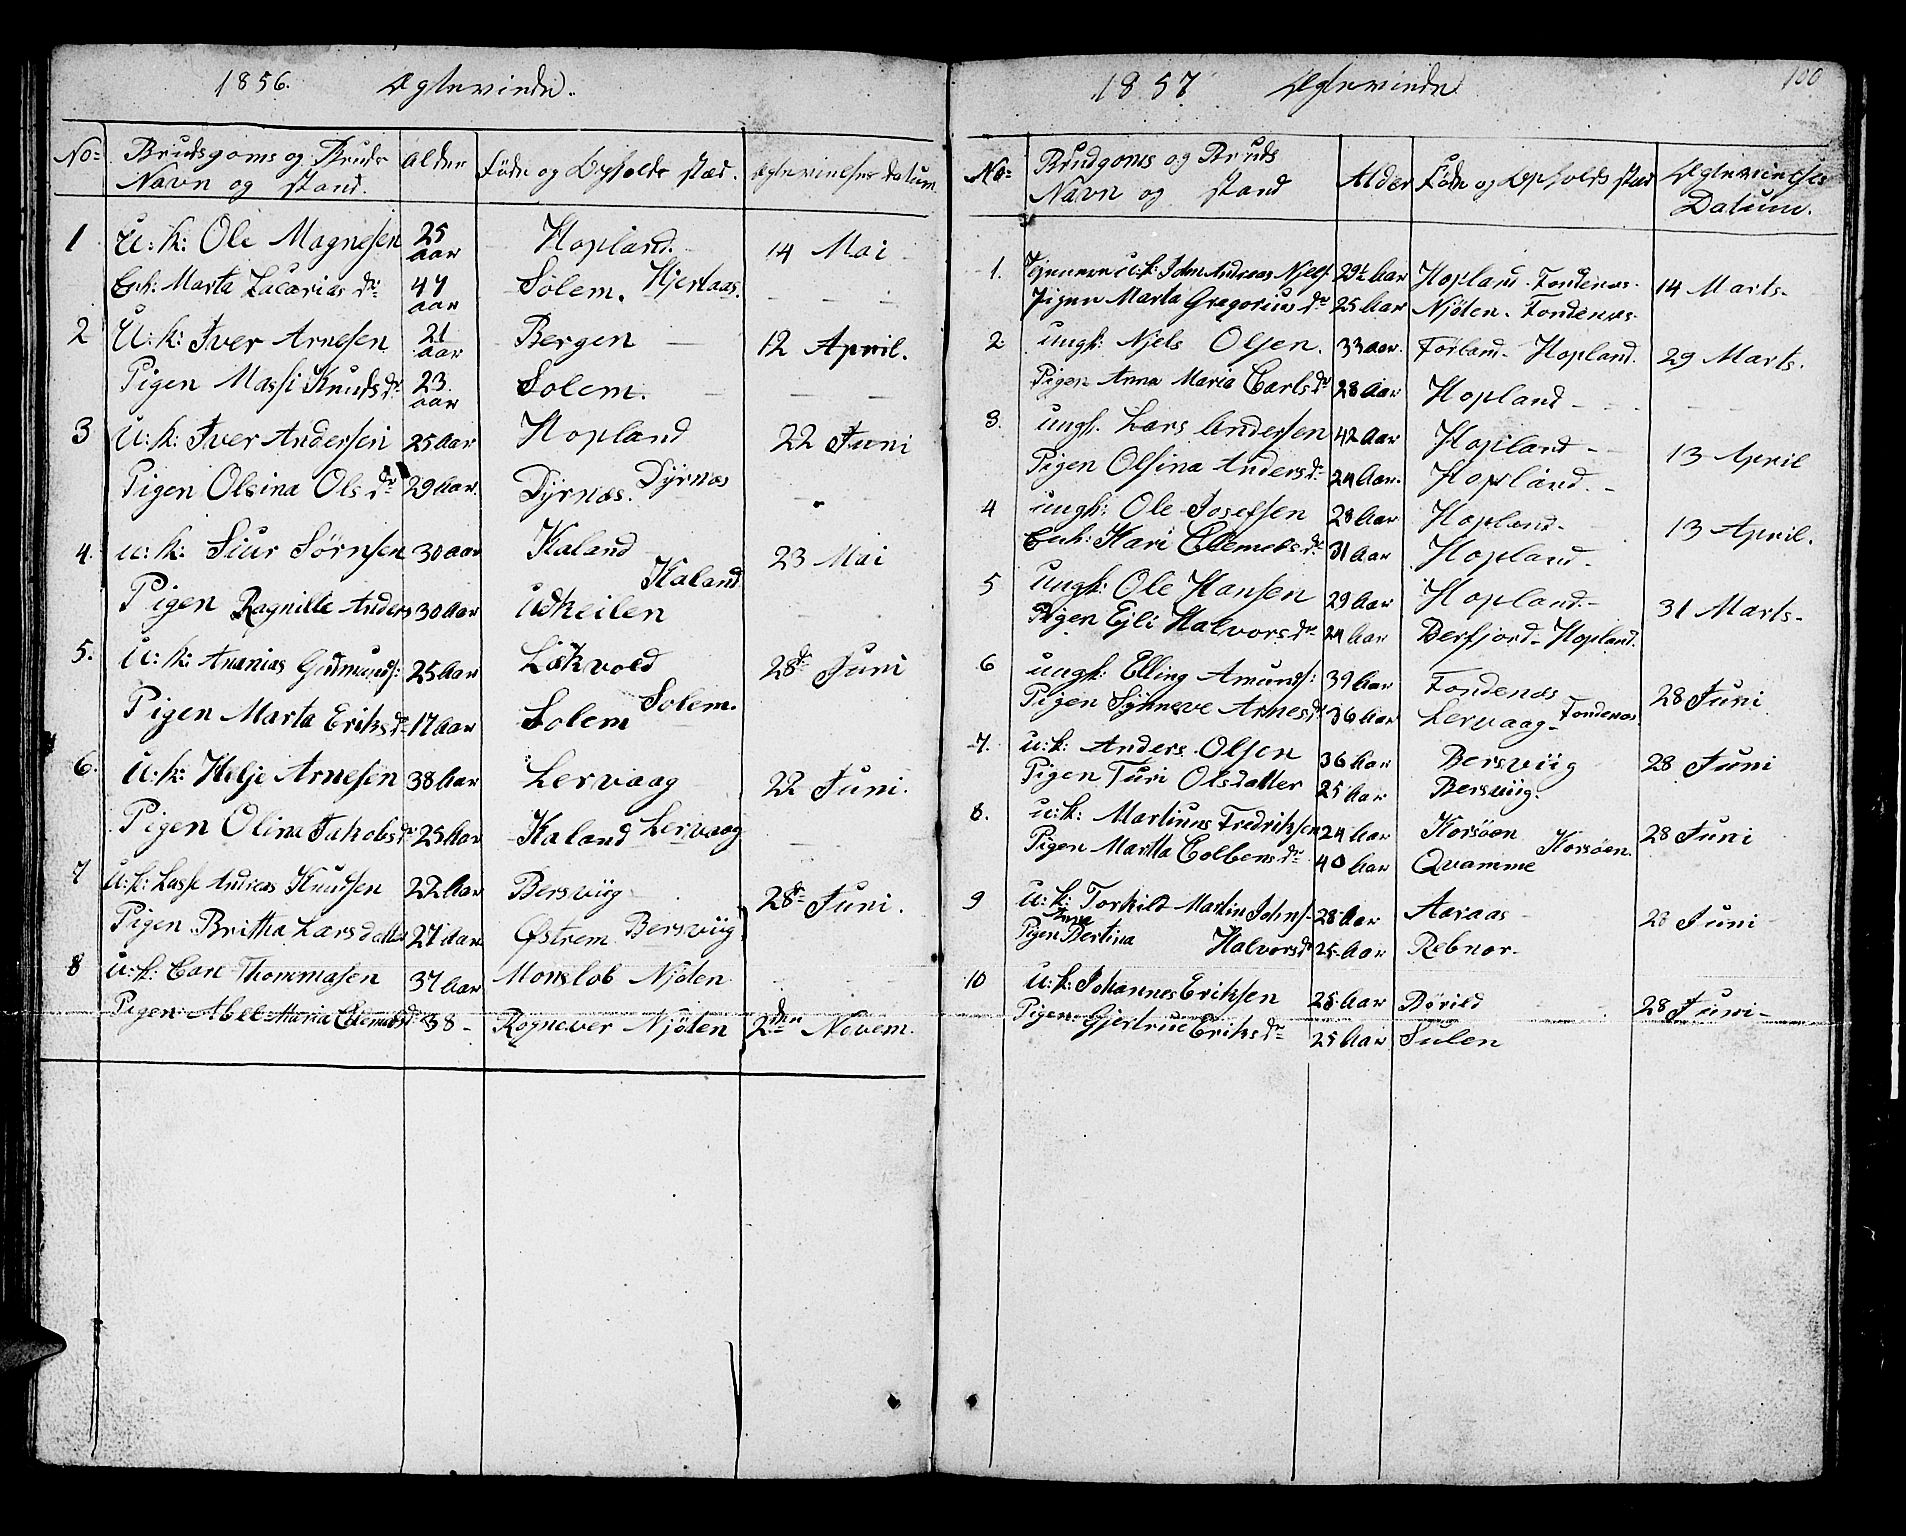 1856. Ægtevinde.
No= Brudsgoms og Brude Navn og stand. Alder Føde og Opholds stæd. Ægtevinelses Datum
1 U: k: Ole Magnesen 25 aar Hopland. 14 Mai
Enk: Marta Zacarias dr 47 aar Solem. Hjertaas.
2 U: k: Iver Arnesen 21 aar Bergen 12 April.
Pigen Massi Knuds dr 23 aar Solem.
3 U: k: Iver Andersen 25 Aar Hopland 22 Juni
Pigen Olsina Ols dr 29 Aar. Dyrnæs. Dyrnæs
4. u: k: Siur Sørnsen 30 aar Kaland 23 Mai
Pigen Ragnille Anders 30 Aar Udkeilen Kaland
5. U: k: Ananias Gudmunds: 25 Aar Løkvold 28de Juni
Pigen Marta Eriks dr 17 aar Solem Solem.
6. U: k: Helje Arnesen 38 Aar Lervaag 22 Juni.
Pigen Oline Jakobs dr 25 Aar Kaland Lervaag
7 U: k: Lasse Andreas Knudsen 22 Aar Bersviig 28de Juni.
Pigen Britha Larsdatter 27 Aar Østrem Bersviig
8 U: k: Carl Thommasen 37 Aar Monslob Njøten
Pigen Abel Maria Clemets dr 38 - Rognever Njøten 2den Novem.
1857 Ægtevinde 100
No= Brudgoms og Bruds Navn og stand Alder Føde og Opholds stæd Ægtevinelses Datum.
1. u: k: John Andreas 29½ Aar Hopland - Fondenæs - 14 Marts-
Pigen Marta Gregorius dr 25 Aar Njøten - Fondenæs
2 ungk: Njels Olsen. 33 aar. Førland - Hopland. 29 Marts.
Pigen Anna Maria Carls dr 28 Aar Hopland
3. ungk. Lars Andersen 42 Aar Hopland 13 April
Pigen Olsina Anders dr 24 Aar. Hopland.
4 ungk: Ole Josefsen 28 Aar Hopland 13 April.
Enk: Kari Clemets dr 31 Aar Hopland.
5 Ungk: Ole Hansen 29 Aar Hopland. 31 Marts-
Pigen Ejli Halvors dr 24 Aar Berfjord - Hopland.
6 ungk: Elling Amunds: 39 Aar Fondenæs 28 Juni
Pigen Synneve Arnes dr 36 Aar Lervaag - Fondenæs
7. U: k: Anders Olsen 36 Aar Bersviig 28 Juni
Pigen Turi Olsdatter 25 Aar Bersviig.
8. U: k: Martinus Fredriksen 24 Aar Korsøen 28 Juni
Pigen Martha Colbens dr 40 Aar Qvamme Korsøen.
9 U: k: Torkild Martin Johns- 28 Aar Aaraas 28 Juni
Pigen Anna Bertina Halvors dr 25 Aar Rebnor-
10 U: k: Johannes Eriksen 28 Aar Børild 28 Juni-
Pigen Gjertrue Eriks dr 25 Aar Sulen